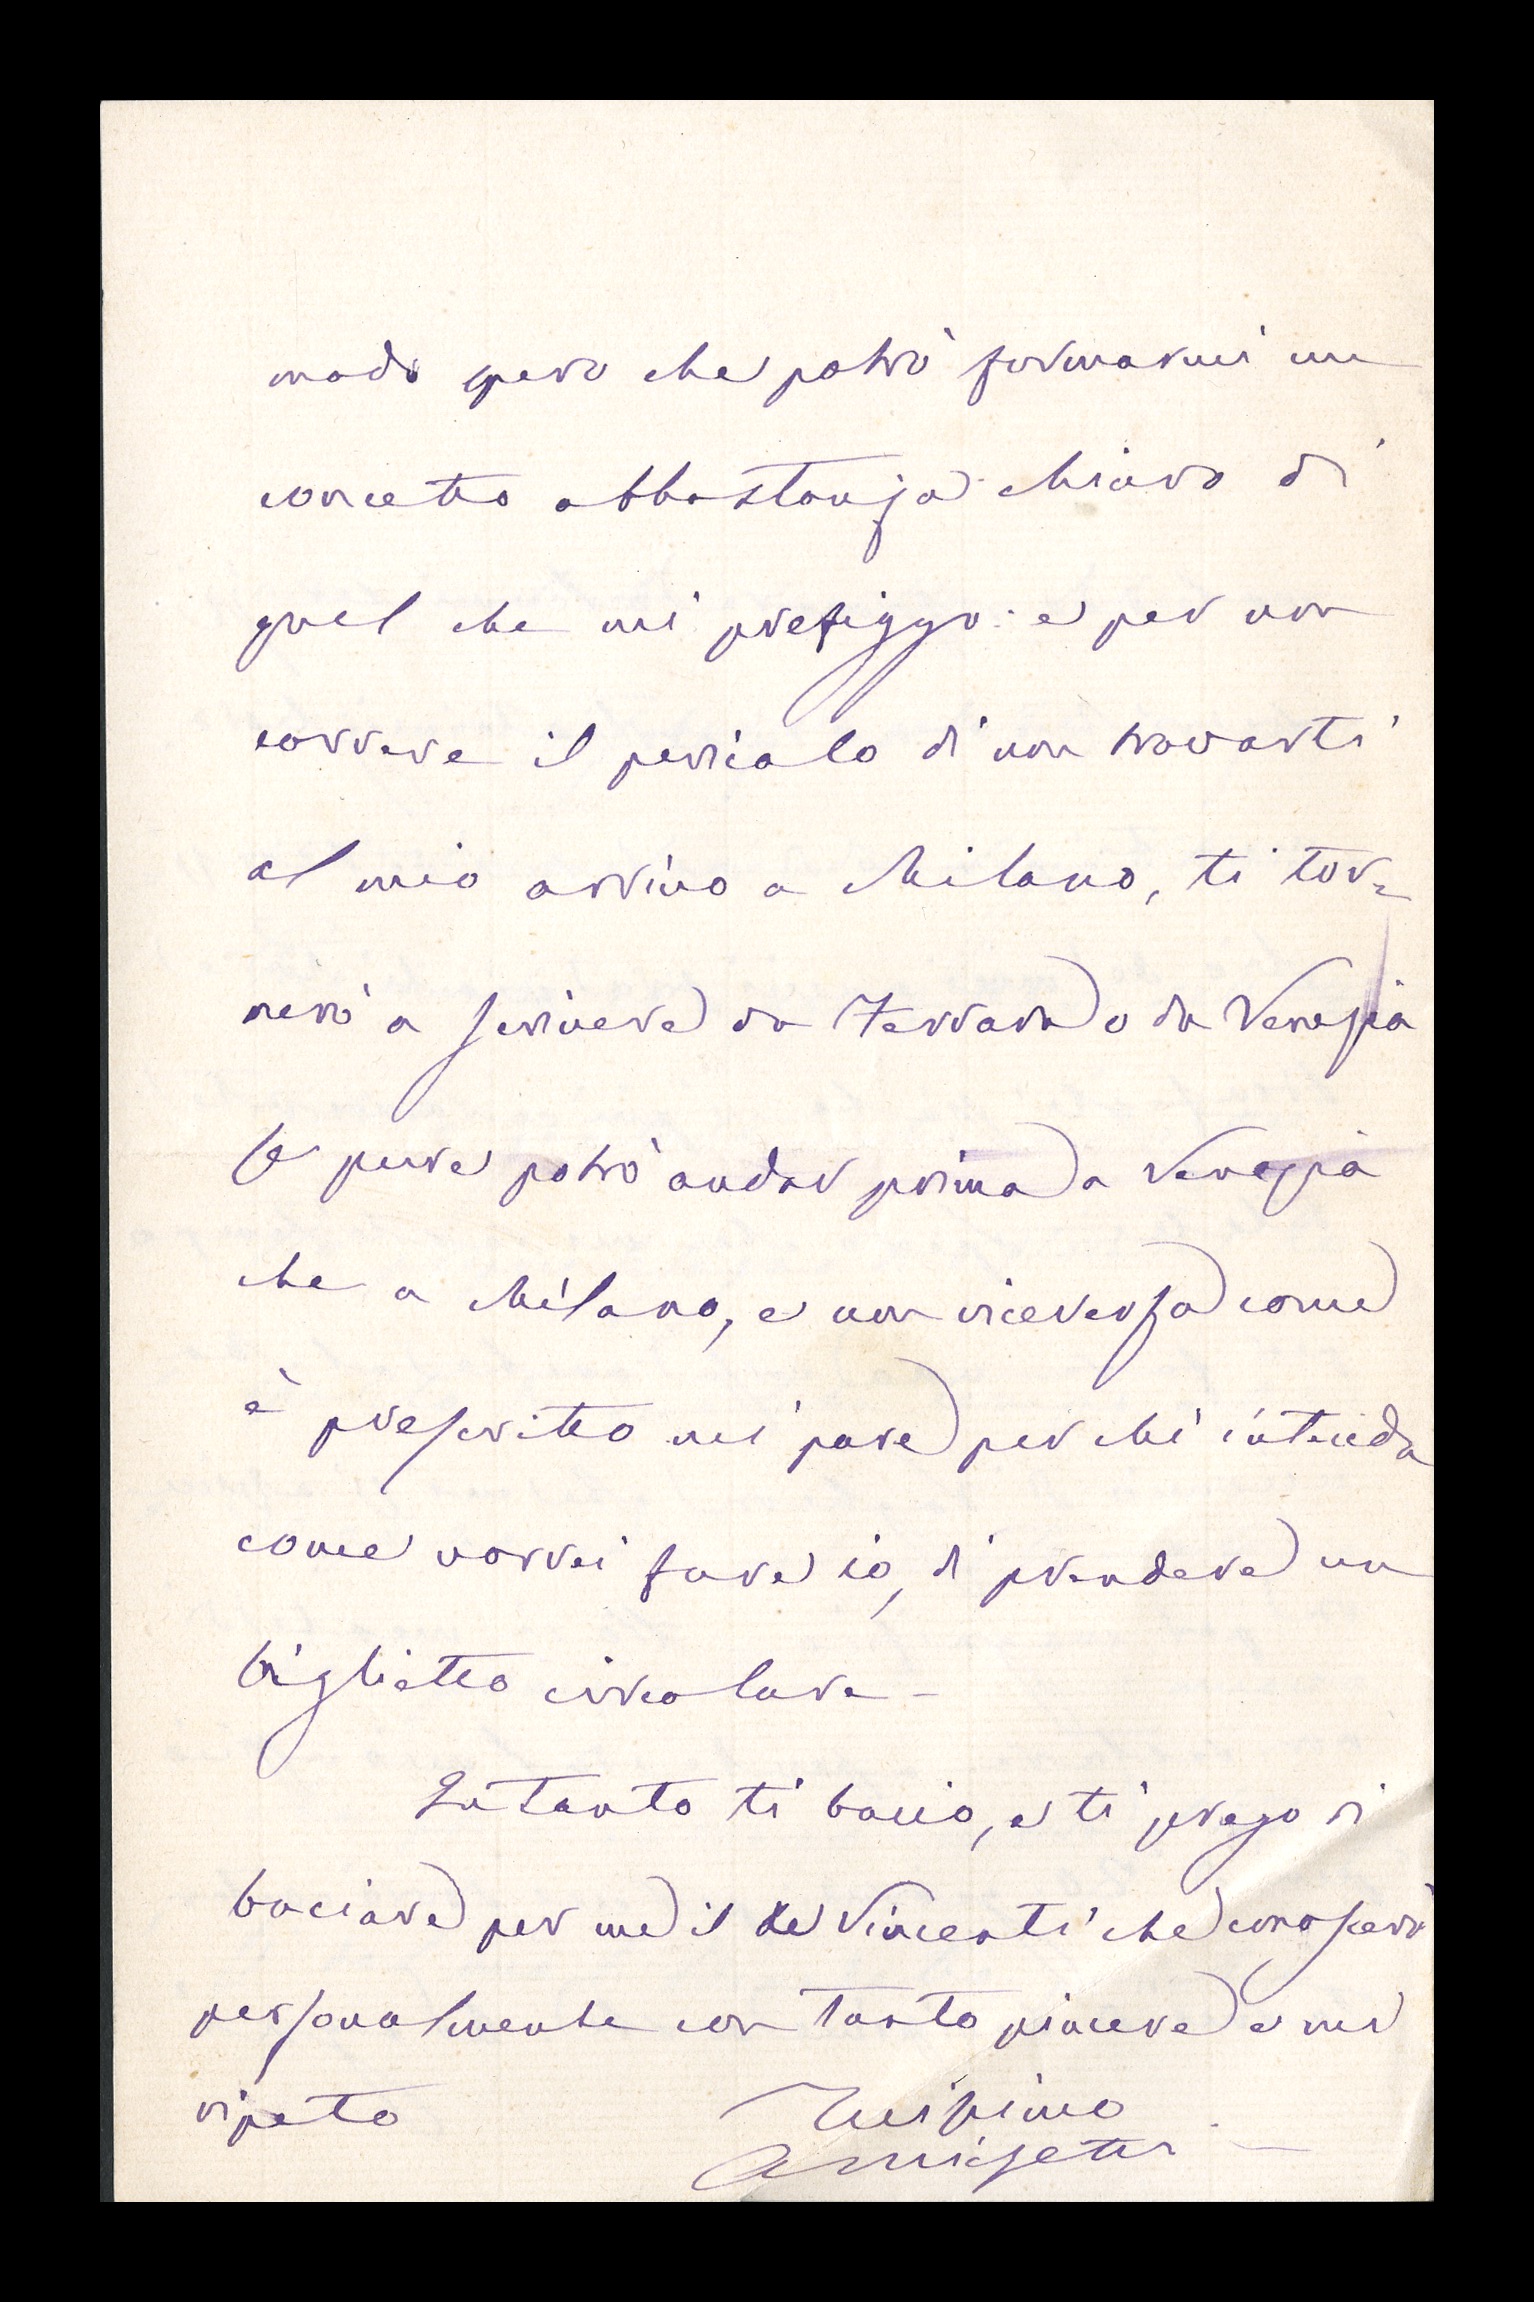 modo spero che potrò formarmi un
concetto abbastanza chiaro di
quel che mi prefiggo: e per non
correre il pericolo di non trovarti
al mio arrivo a Milano, ti tor=
nerò a scrivere da Ferrara o da Venezia
se pure potrò andar prima a Venezia
che a Milano, e non viceversa come
è prescritto mi pare per chi intenda
come vorrei fare io, di prendere un
biglietto circolare -
Intanto ti bacio, e ti prego di
baciare per me il de Vincenti che conoscerò
personalmente con tanto piacere e mi
ripeto